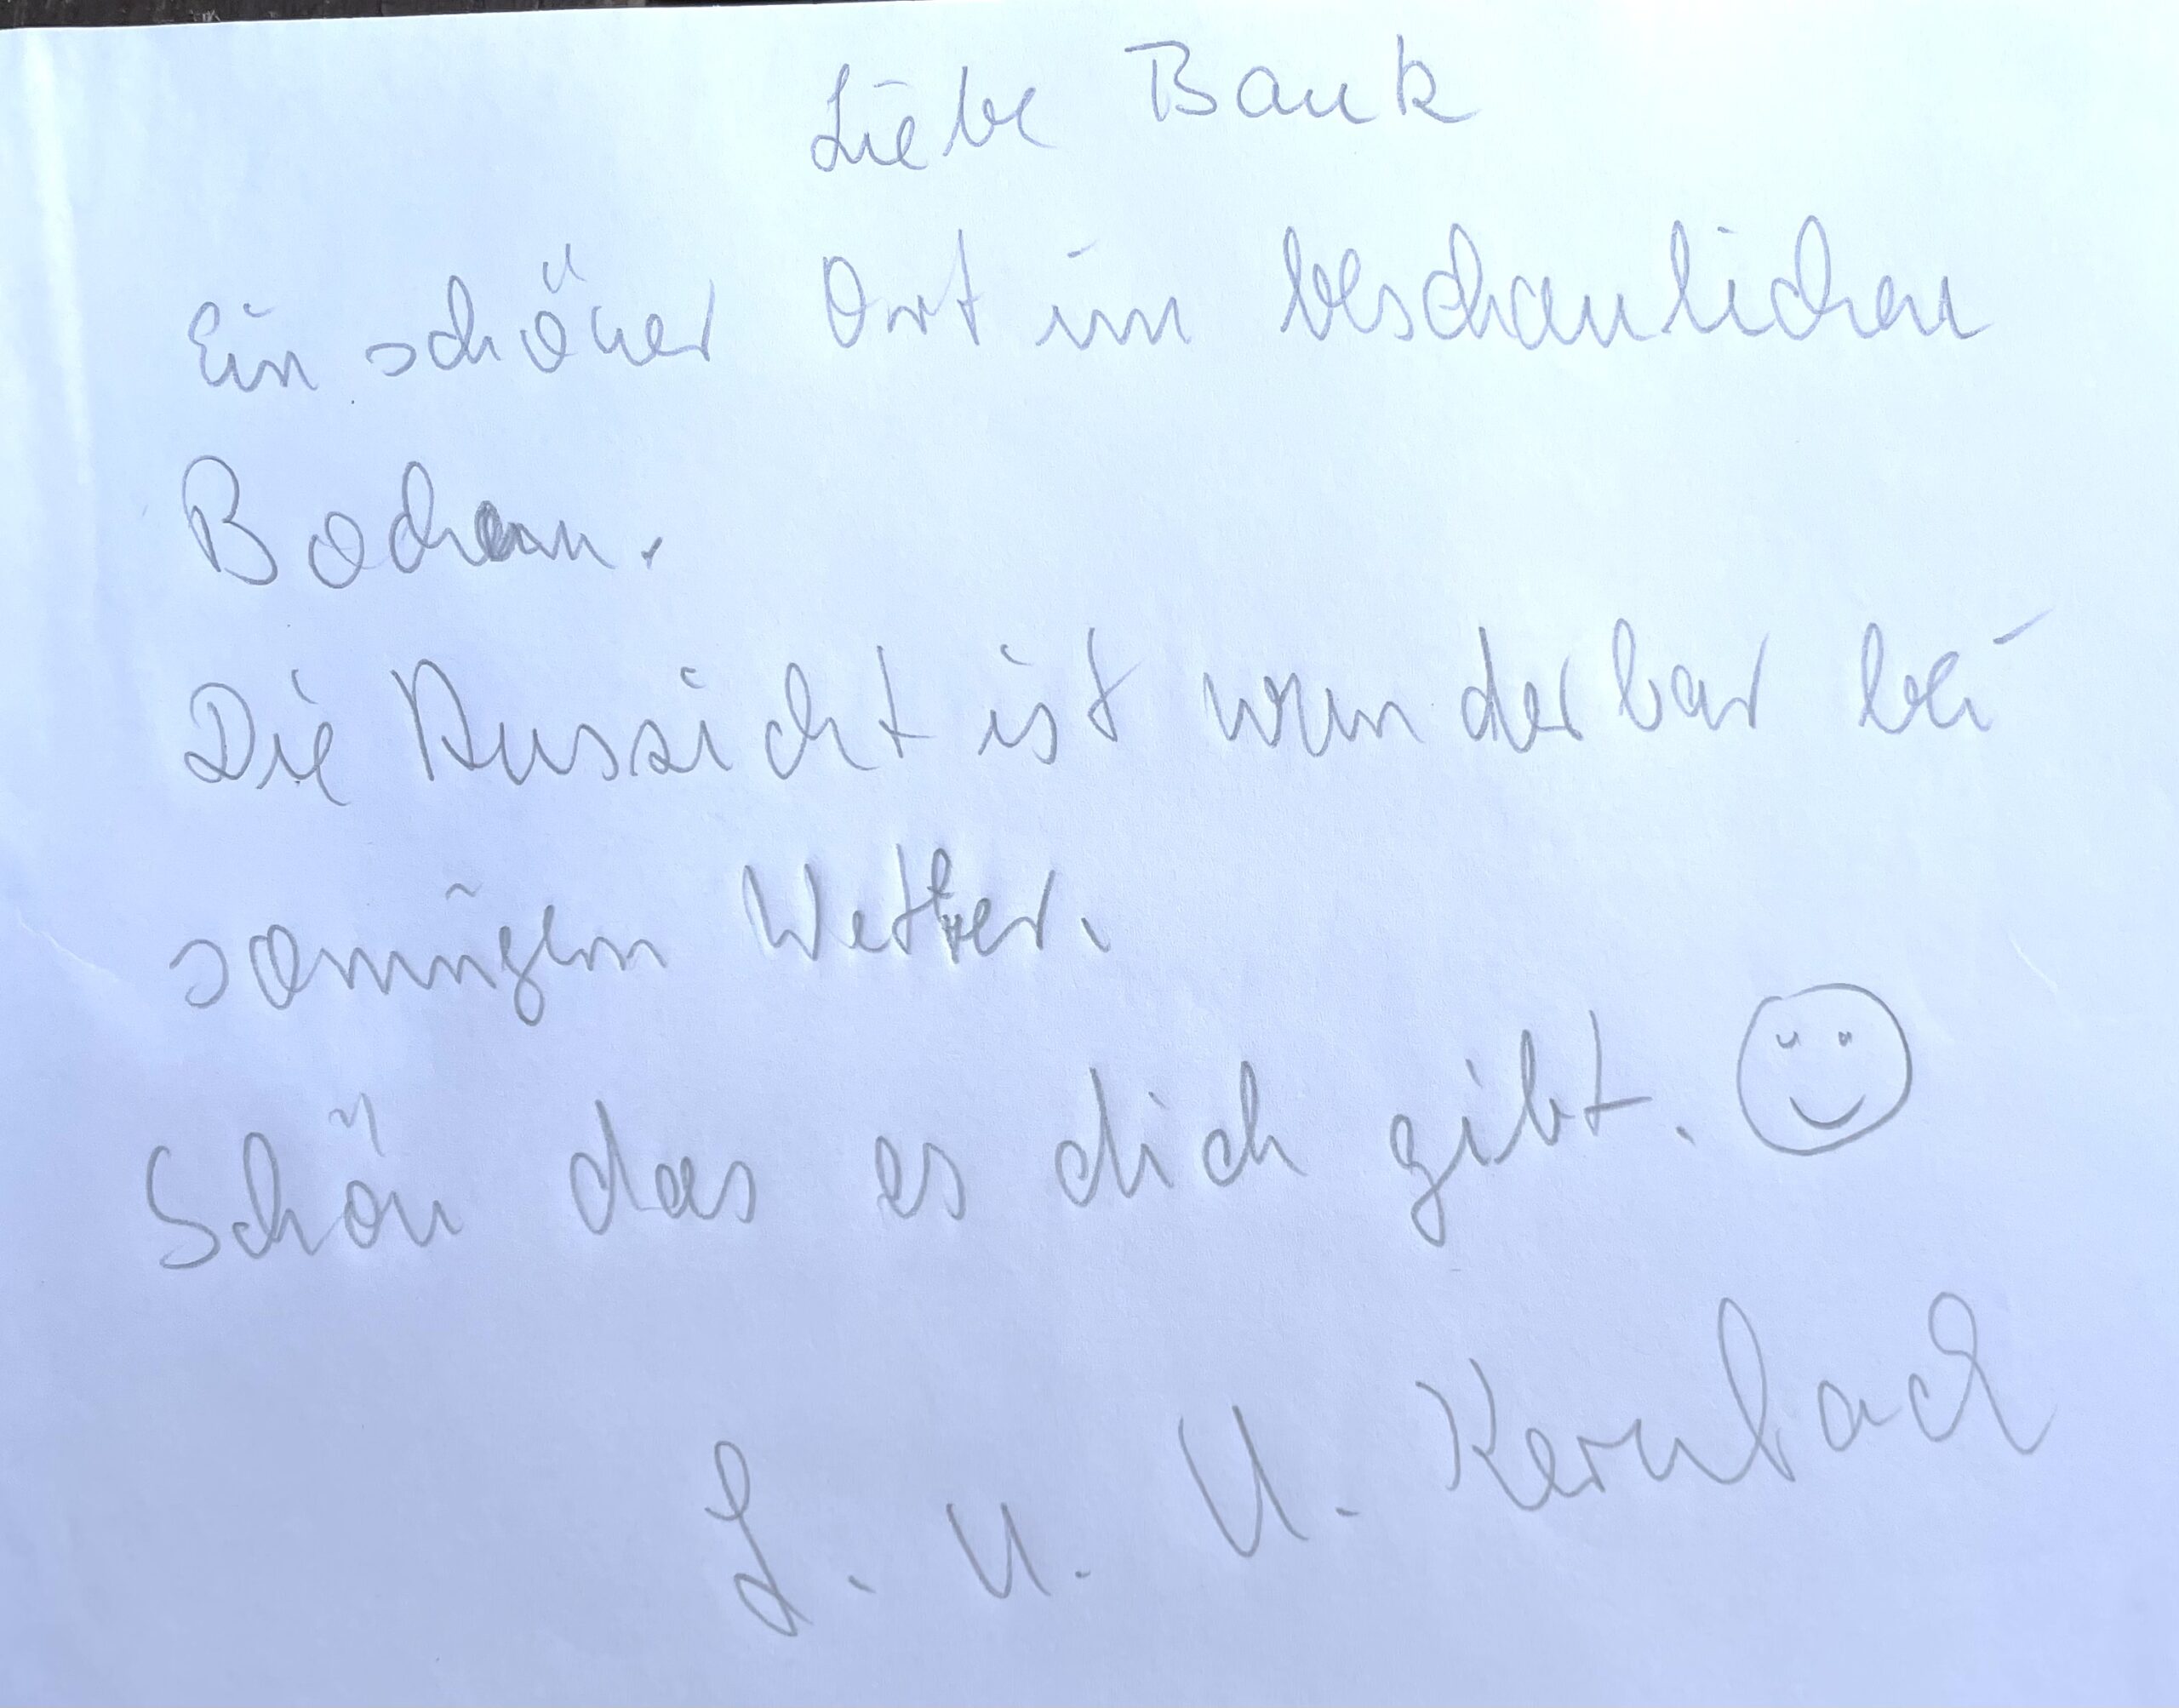 Liebe Bank
Ein schöner Ort im beschaulichen
Die Aussicht ist wunderbar bei
sonnigem Wetter.
Schön das es dich gibt.
L. u. U. Kernbach